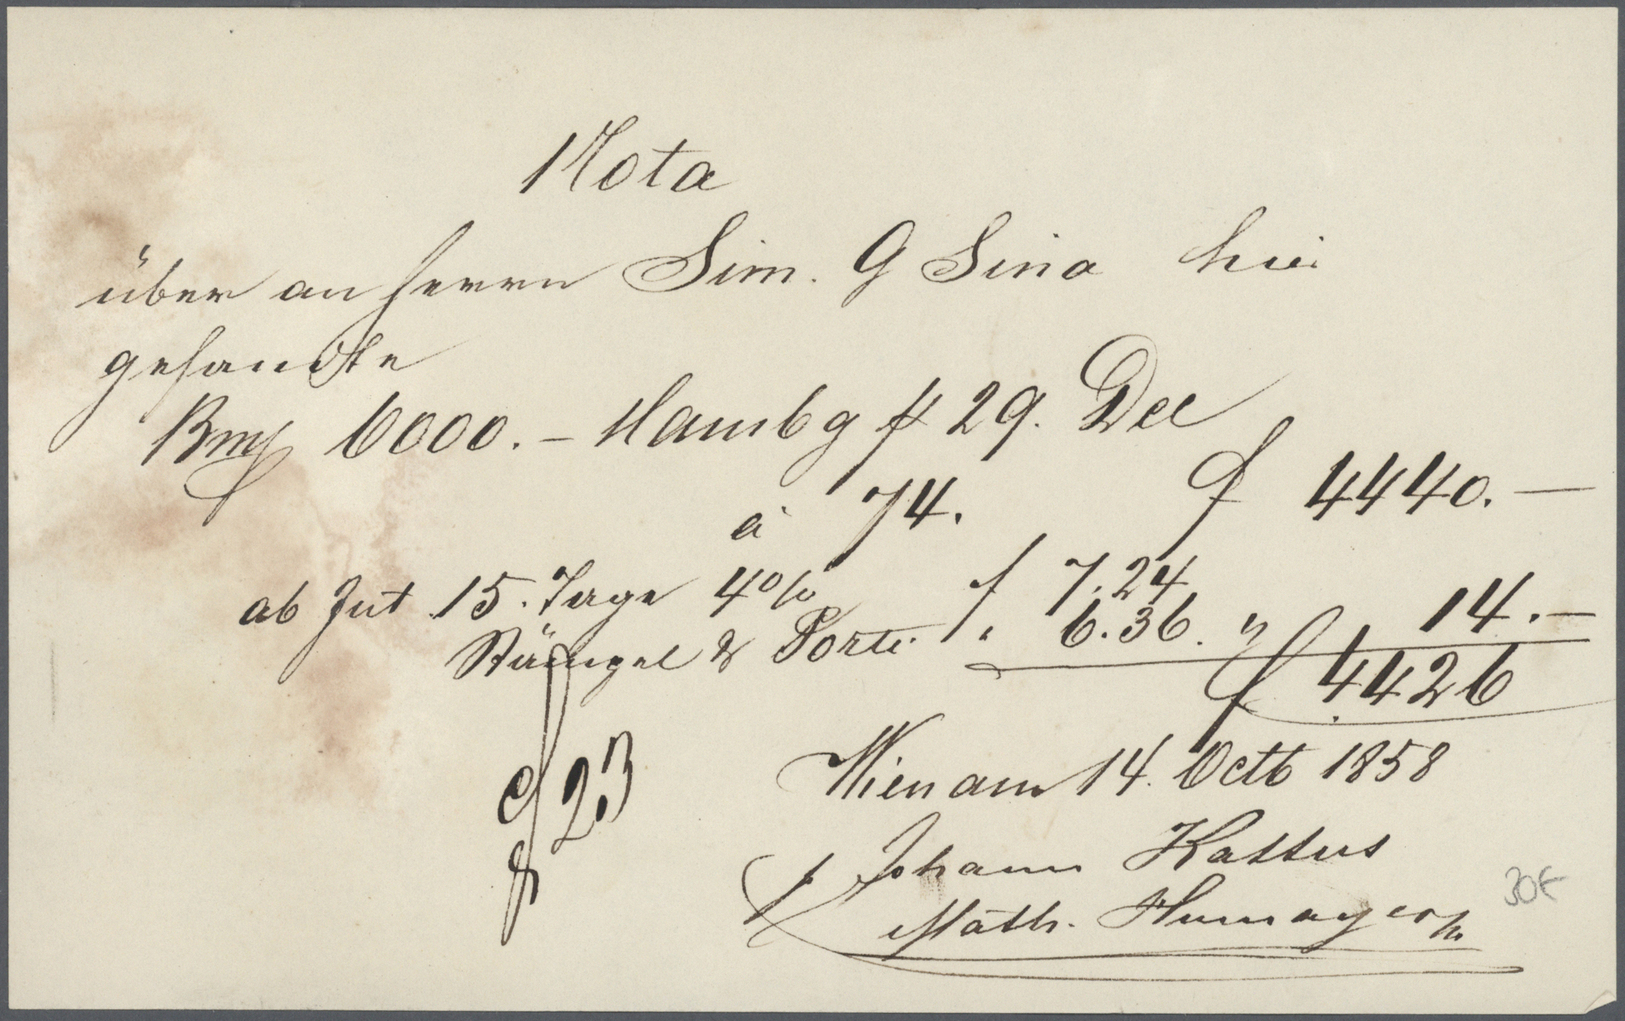 Nota
über an Herrn Sim. G Sina hier
gesandte
Bmf 6000.- Hambg pr 29. Dec
à 74. f 4440.—
ab Int 15. Tage 4% f 7.24
Stämpel & Porti " 6.36. " 14.-
f 4426
23
Wien am 14. Octb 1858
Johann Kattus
Math.
30€